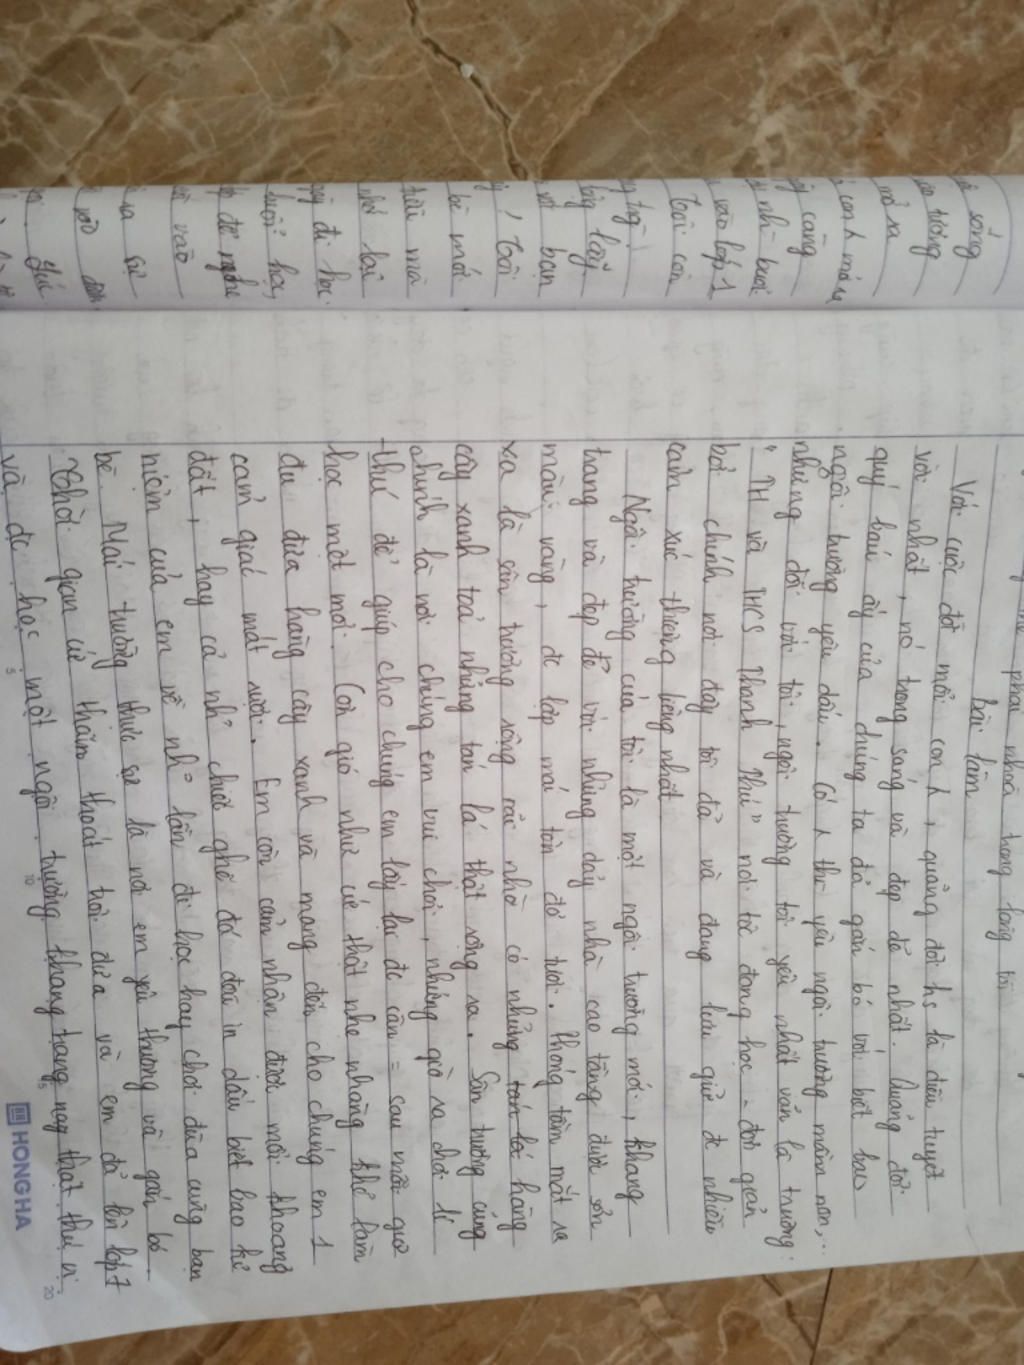 phai nhòa trong lòng tôi
bài làm
Với cuộc đời mỗi con λ, quãng đời hs là điều tuyệt
vời nhất, nó trong sáng và đẹp đẽ nhất. Quãng đời
quý báu ấy của chúng ta đã gắn bó với biết bao
ngôi trường yêu dấu. Có λ thì yêu ngôi trường mầm non,...
nhưng đối với tôi, ngôi trường tôi yêu nhất vẫn là trường:
" TH và THCS Thanh Phú" nơi tôi đang học - đơn giản
bởi chính nơi đây tôi đã và đang lưu giữ đc nhiều
cảm xúc thiêng liêng nhất
Ngôi trường của tôi là một ngôi trường mới, khang
trang và đẹp đẽ với những dãy nhà cao tầng được sơn
màu vàng, đc lợp mái tôn đỏ tươi. Phóng tầm mắt ra
xa là sân trường rộng rãi nhờ có những tán lá hàng
cây xanh toả những tán lá thật rộng ra. Sân trường cũng
chính là nơi chúng em vui chơi, những giờ ra chơi lí
thú để giúp cho chúng em lấy lại đc cân = sau mỗi giờ
học mệt mỏi. Còn gió như cứ thật nhẹ nhàng khẽ làm
đu đưa hàng cây xanh và mang đến cho chúng em 1
cảm giác mát rượi. Em còn cảm nhận được mỗi khoảng
đất, hay cả nh~ chiếc ghế đá đều in dấu biết bao kỉ
niệm của em về nh~ lần đi học hay chơi đùa cùng bạn
bè. Mái trường thực sự là nơi em yêu thương và gắn bó
Thời gian cứ thấm thoát trôi đưa và em đã lên lớp 7
và đc học một ngôi trường khang trang nay thật thú vị.
5
10
15
20
HONG HA
sống
mở ra
con λ mở ra
càng
nh~ buổi
vào lớp 1
Tôi còn
lấy
bạn
! Tôi
bè mới
mà
nhớ lại
đi học
học,
để nghe
vào
ra
vào
yêu